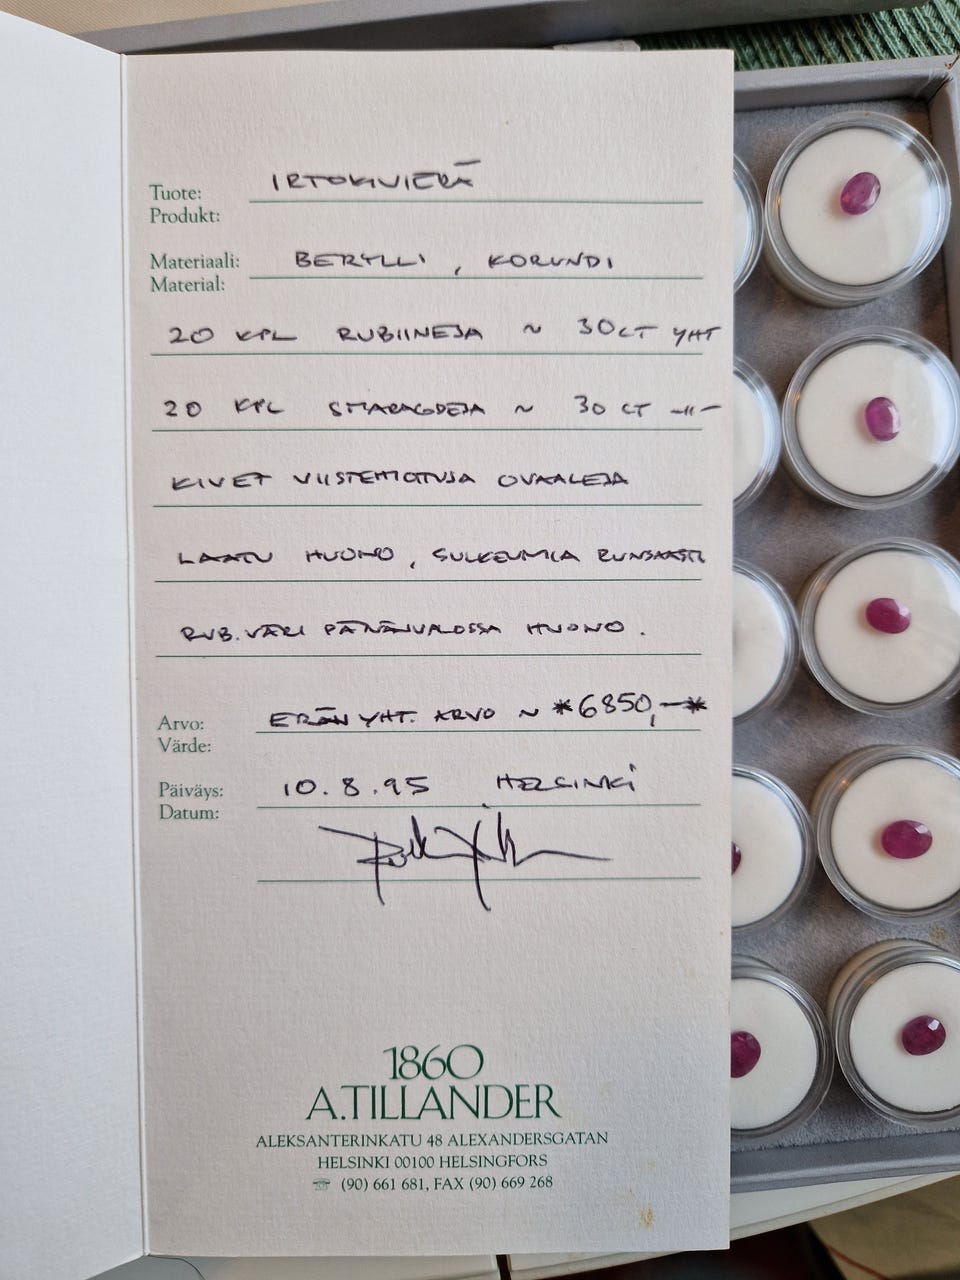 Tuote: IRTOKIVIERÄ
Produkt:
Materiaali: BERYLLI, KORUNDI
Material:
20 KPL RUBIINEJA ~ 30CT YHT
20 KPL SMARAGDEJA ~ 30 CT -"-
KIVET VIISTEHIOTTUJA OVAALEJA
LAATU HUONO, SULKEUMIA RUNSAASTI
RUB. VÄRI PÄIVÄNVALOSSA HUONO.
Arvo: ERÄN YHT. ARVO ~ *6850,-*
Värde:
Päiväys: 10.8.95 HELSINKI
Datum:
1860
A.TILLANDER
ALEKSANTERINKATU 48 ALEXANDERSGATAN
HELSINKI 00100 HELSINGFORS
☏ (90) 661 681, FAX (90) 669 268